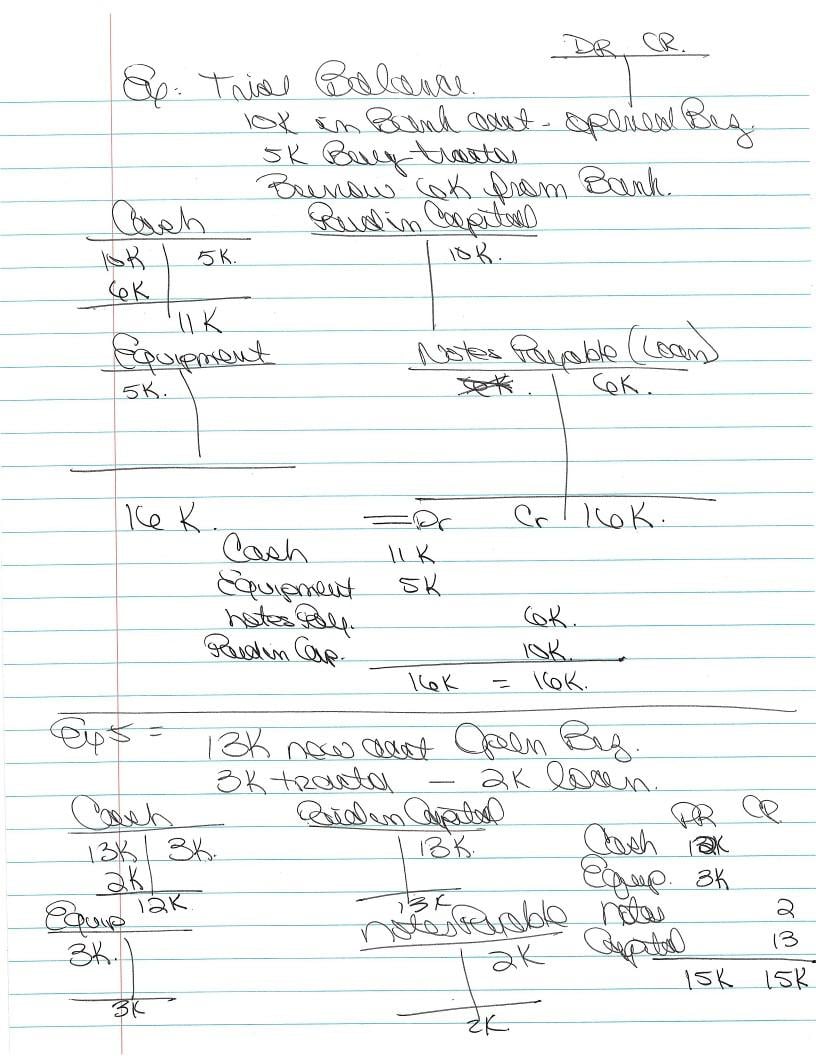 DR CR.
Ex: Trial Balance.
10K in Bank acct - opened Biz.
5K Buy tractor
Borrow 6K from Bank.
Cash Paid in Capital
10K 5K. 10K.
6K
11K
Equipment Notes Payable (Loan)
5K. 6K. 6K.
16K. = Dr Cr 16K.
Cash 11K
Equipment 5K
notes Pay. 6K.
Paid in Cap. 10K.
16K = 16K.
Ex 5 =
13K new acct Open Biz.
3K tractor - 2K loan.
Cash Paid in Capital DR CR
13K 3K. 13K. Cash 12K
2K Equip. 3K
12K. 13K notes 2
Equip Notes Payable Capital 13
3K. 2K 15K 15K
3K 2K